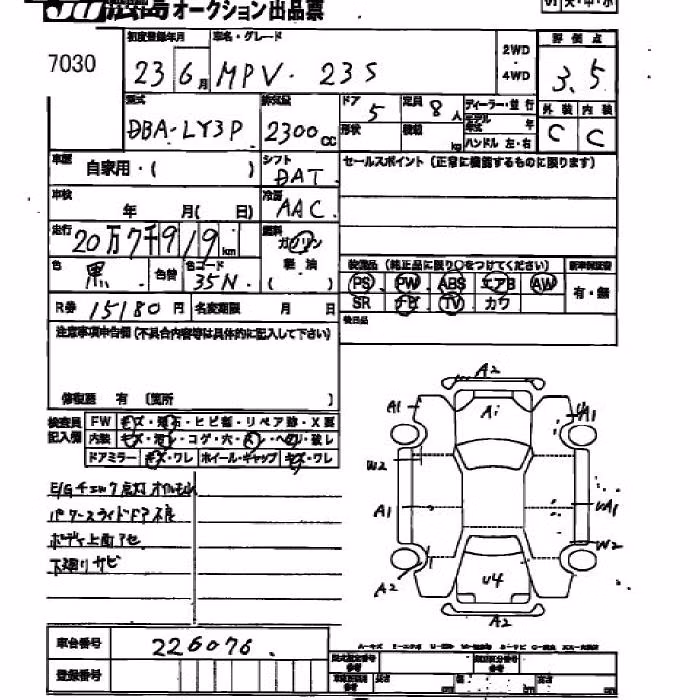 JU広島オークション出品票
V1 大・中・小
7030
初度登録年月 車名・グレード 評価点
23 6月 MPV・23S 2WD・4WD 3.5
型式 排気量 ドア 5 定員 8人 ディーラー・並行 外装 内装
DBA-LY3P 2300cc 形状 積載 kg モデル年式 年 C C
ハンドル 左・右
車歴 自家用・( ) シフト DAT セールスポイント (正常に機能するものに限ります)
車検 年 月( 日) 冷房 AAC
走行 20万7千919km 燃料 ガソリン
軽油
( )
色 黒 色替 色コード 35N
装備品 (純正品に限り○をつけてください) 新車保証書
PS PW ABS エアB AW 有・無
SR ナビ TV カワ
R券 15180円 名変期限 月 日
後日品
注意事項申告欄(不具合内容等は具体的に記入して下さい)
修復歴 有 〔箇所
検査員記入欄 FW キズ・飛石・ヒビ割・リペア跡・X要
内装 キズ・汚レ・コゲ・穴・スレ・ヘタリ・破レ
ドアミラー キズ・ワレ ホイール・キャップ キズ・ワレ
E/Gチェック点灯 オイルもれ
パワースライドドア不良
ボディ上面アセ
下廻りサビ
A2
A1 A1 A1
W2
A1 UA1
W2
A2 U4
A2
車台番号 226076
登録番号